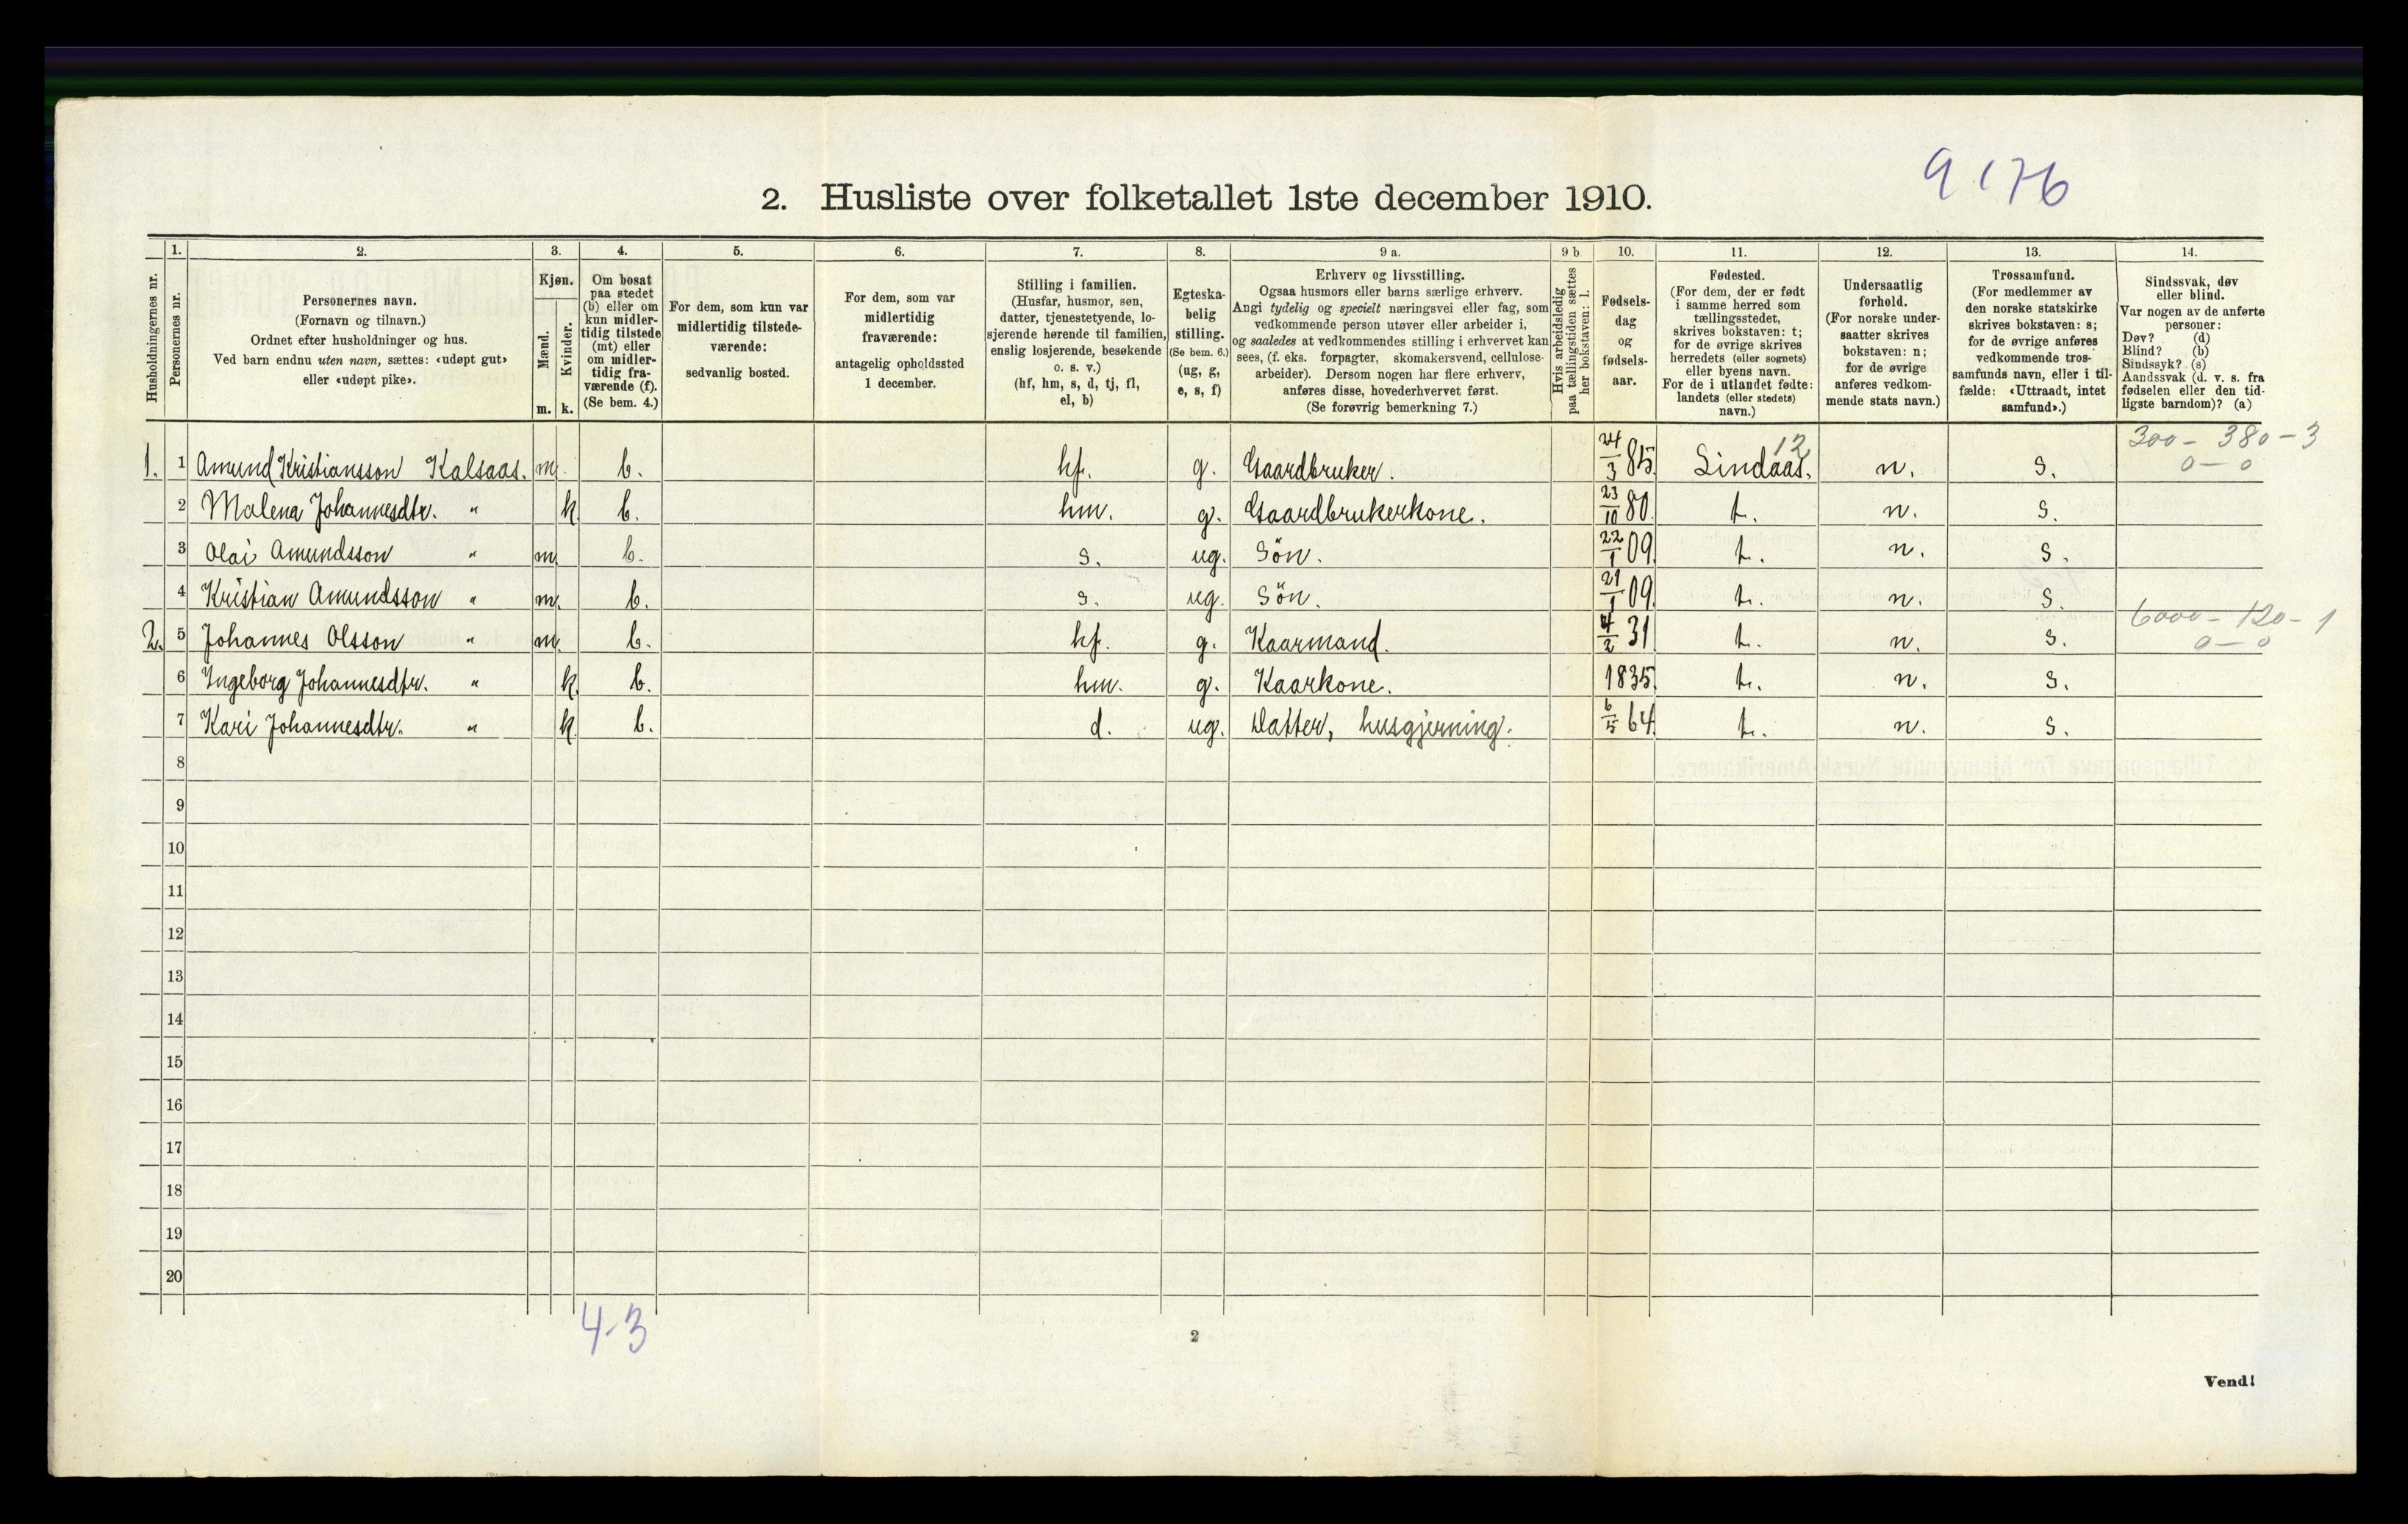 9176
2. Husliste over folketallet 1ste december 1910.
Husholdningernes nr.
1.
Personernes nr.
2.
Personernes navn.
(Fornavn og tilnavn.)
Ordnet efter husholdninger og hus.
Ved barn endnu uten navn, sættes: «udøpt gut»
eller «udøpt pike».
3.
Kjøn.
Mænd.
Kvinder.
m. k.
4.
Om bosat
paa stedet
(b) eller om
kun midler-
tidig tilstede
(mt) eller
om midler-
tidig fra-
værende (f).
(Se bem. 4.)
5.
For dem, som kun var
midlertidig tilstede-
værende:
sedvanlig bosted.
6.
For dem, som var
midlertidig
fraværende:
antagelig opholdssted
1 december.
7.
Stilling i familien.
(Husfar, husmor, søn,
datter, tjenestetyende, lo-
sjerende hørende til familien,
enslig losjerende, besøkende
o. s. v.)
(hf, hm, s, d, tj, fl,
el, b)
8.
Egteska-
belig
stilling.
(Se bem. 6.)
(ug, g,
e, s, f)
9 a.
Erhverv og livsstilling.
Ogsaa husmors eller barns særlige erhverv.
Angi tydelig og specielt næringsvei eller fag, som
vedkommende person utøver eller arbeider i,
og saaledes at vedkommendes stilling i erhvervet kan
sees, (f. eks. forpagter, skomakersvend, cellulose-
arbeider). Dersom nogen har flere erhverv,
anføres disse, hovederhvervet først.
(Se forøvrig bemerkning 7.)
9 b
Hvis arbeidsledig
paa tællingstiden sættes
her bokstaven: l.
10.
Fødsels-
dag
og
fødsels-
aar.
11.
Fødested.
(For dem, der er født
i samme herred som
tællingsstedet,
skrives bokstaven: t;
for de øvrige skrives
herredets (eller sognets)
eller byens navn.
For de i utlandet fødte:
landets (eller stedets)
navn.)
12.
Undersaatlig
forhold.
(For norske under-
saatter skrives
bokstaven: n;
for de øvrige
anføres vedkom-
mende stats navn.)
13.
Trossamfund.
(For medlemmer av
den norske statskirke
skrives bokstaven: s;
for de øvrige anføres
vedkommende tros-
samfunds navn, eller i til-
fælde: «Uttraadt, intet
samfund».)
14.
Sindssvak, døv
eller blind.
Var nogen av de anførte
personer:
Døv? (d)
Blind? (b)
Sindssyk? (s)
Aandssvak (d. v. s. fra
fødselen eller den tid-
ligste barndom)? (a)
12 300 - 380 - 3
0 - 0
1. 1 Amund Kristiansson Kalsaas. m. b. hf. g. Gaardbruker. 24/3 85. Lindaas. n. s.
2 Malena Johannesdtr. " k. b. hm. g. Gaardbrukerkone. 23/10 80. t. n. s.
3 Olai Amundsson " m. b. s. ug. Sön. 22/1 09. t. n. s.
4 Kristian Amundsson " m. b. s. ug. Sön. 21/1 09. t. n. s.
6000 - 120 - 1
0 - 0
2. 5 Johannes Olsson " m. b. hf. g. Kaarmand. 4/2 31 t. n. s.
6 Ingeborg Johannesdtr. " k. b. hm. g. Kaarkone. 1835. t. n. s.
7 Kari Johannesdtr. " k. b. d. ug. Datter, husgjerning. 6/5 64. t. n. s.
8
9
10
11
12
13
14
15
16
17
18
19
20
4-3
2
Vend!